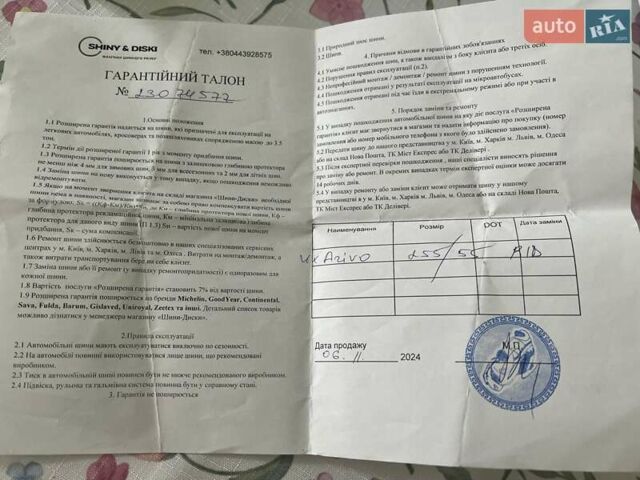 SHINY & DISKI
тел. +380443928575
ГАРАНТІЙНИЙ ТАЛОН
№ 23074577
1.Основні положення
1.1 Розширена гарантія надається на шини, які призначені для експлуатації на
легкових автомобілях, кросоверах та позашляховиках спорядженою масою до 3.5
том.
1.2 Термін дії розширеної гарантії 1 рік з моменту придбання шини.
1.3 Розширена гарантія поширюється на шини з залишковою глибиною протектора
не менш ніж 4 мм для зимових шин, 3 мм для всесезонних та 2 мм для літніх шин.
1.4 Заміна шини на нову виконується у тому випадку, якщо пошкодження неможливо
відремонтувати.
1.5 Якщо на момент звернення клієнта на складі магазина «Шини-Диски» необхідної
шини нема в наявності, магазин залишає за собою право компенсувати вартість шини
глибина протектора рекламаційної шини, Км – мінімальна залишкова глибина
протектора для даного виду шини (П 1.3) Sп – вартість нової шини на момент
придбання, Sк – сума компенсації.
1.6 Ремонт шини здійснюється безкоштовно в наших спеціалізованих сервісних
центрах у м. Київ, м. Харків, м. Львів та м. Одеса . Витрати на монтаж/демонтаж, а
також витрати транспортування бере на себе клієнт.
1.7 Заміна шини або її ремонт (у випадку ремонтопридатності) є одноразовим для
кожної шини.
1.8 Вартість послуги «Розширена гарантія» становить 7% від вартості шини.
1.9 Розширена гарантія поширюється на бренди Michelin, GoodYear, Continental,
Sava, Fulda, Barum, Gislaved, Uniroyal, Zeetex та інші. Детальний список товарів
можливо дізнатися у менеджера магазину «Шини-Диски».
2.Правила експлуатації
2.1 Автомобільні шини мають експлуатуватися виключно по сезонності.
2.2 На автомобілі повинні використовуватися лише шини, що рекомендовані
виробником.
2.3 Тиск в автомобільній шині повинен бути не нижче рекомендованого виробником.
2.4 Підвіска, рульова та гальмівна система повинна бути у справному стані.
3. Гарантія не поширюється
3.1 Природний знос шини.
3.2 Шипи.
4. Причини відмови в гарантійних зобов'язаннях
4.1 Умисне пошкодження шин, а також вандалізм з боку клієнта або третіх осіб.
4.2 Порушення правил експлуатації (п.2).
4.3 Непрофесійний монтаж / демонтаж / ремонт шини з порушенням технології.
4.4 Пошкодження отримані у результаті експлуатації на мікроавтобусах.
4.5 Пошкодження отримані під час їзди в екстремальному режимі або при участі в
автозмаганнях.
5. Порядок заміни та ремонту
5.1 У випадку пошкодження автомобільної шини на яку діє послуга «Розширена
гарантія» клієнт має звернутися в магазин та надати інформацію про покупку (номер
замовлення або номер мобільного телефона з якого було здійснено замовлення).
5.2 Передати шину до нашого представництва у м. Київ, м. Харків м. Львів, м. Одеса
або на склад Нова Пошта, ТК Міст Експрес або ТК Делівері .
5.3 Після експертної перевірки пошкодження , наші спеціалісти вносять рішення
про заміну або ремонт. В окремих випадках термін експертної оцінки може досягати
14 робочих днів.
5.4 У випадку ремонту або заміни клієнт може отримати шину у нашому
представництві в у м. Київ, м. Харків м. Львів, м. Одеса або на складі Нова Пошта,
ТК Міст Експрес або ТК Делівері.
Найменування Розмір DOT Дата заміни
Arivo 255/55 R18
Дата продажу М.П.
06.11. 2024
auto RIA .com